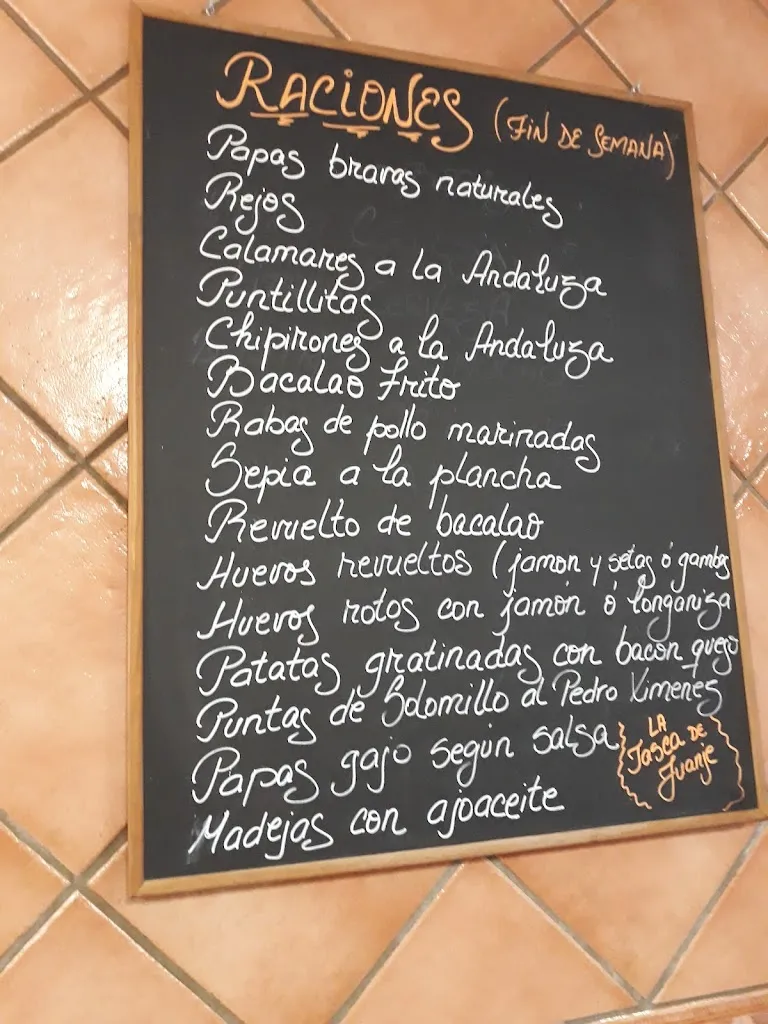 RACIONES (FIN DE SEMANA)
Papas bravas naturales
Rejos
Calamares a la Andaluza
Puntillitas
Chipirones a la Andaluza
Bacalao frito
Rabas de pollo marinadas
Sepia a la plancha
Revuelto de bacalao
Huevos revueltos (jamon y setas ó gambas
Huevos rotos con jamón ó longaniza
Patatas gratinadas con bacon queso
Puntas de Solomillo al Pedro Ximenes
Papas gajo según salsa
Madejas con ajoaceite
LA
Tasca DE
Juanje